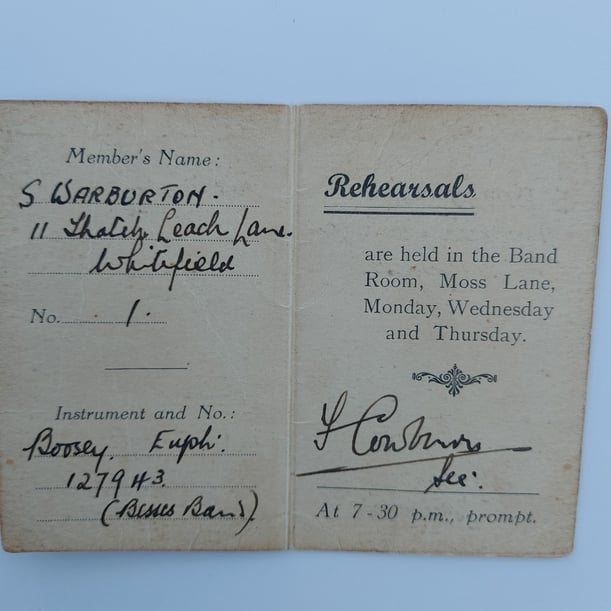 Member's Name:
S WARBURTON.
11 Thatch Leach Lane.
Whitefield
No. 1.
Instrument and No.:
Boosey. Euph:
127943.
(Besses Band).
Rehearsals
are held in the Band
Room, Moss Lane,
Monday, Wednesday
and Thursday.
Sec:
At 7-30 p.m., prompt.